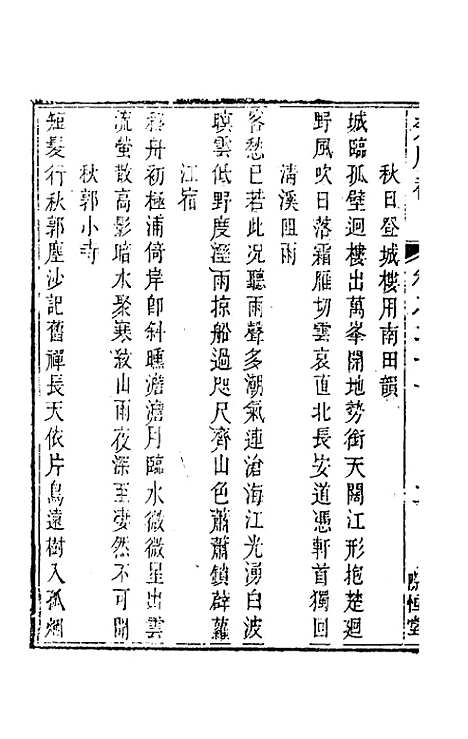 秋日登城樓用南田韻
城臨孤壁迴樓出萬峯開地勢銜天闊江形抱楚迴
野風吹日落霜雁切雲哀直北長安道憑軒首獨回
清溪阻雨
客愁已若此况聽雨聲多潮氣連滄海江光湧白波
暝雲低野度溼雨掠船過咫尺齊山色蕭蕭鎖薜蘿
江宿
移舟初極浦倚岸卽斜曛澹澹月臨水微微星出雲
流螢散高影暗水聚寒敍山雨夜深至凄然不可聞
秋郭小寺
短髮行秋郭塵沙記舊禪長天依片鳥遠樹入孤烟